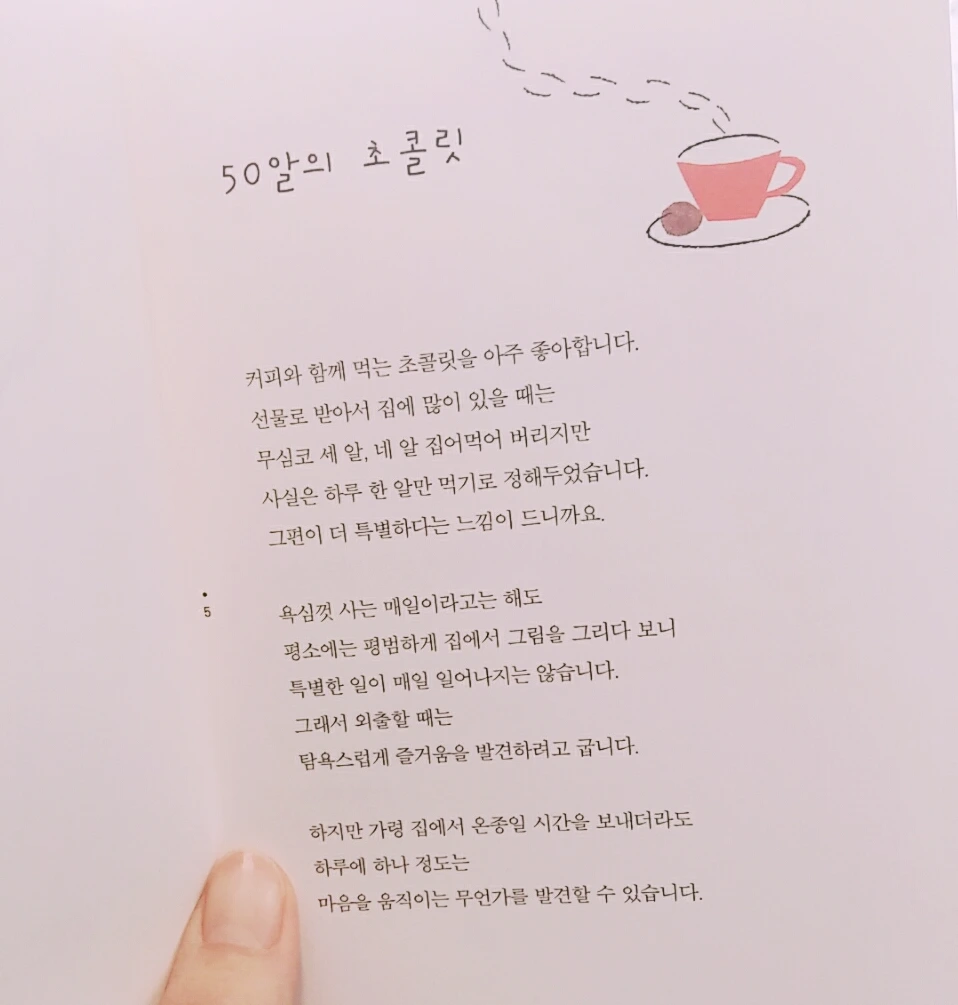 50알의 초콜릿
커피와 함께 먹는 초콜릿을 아주 좋아합니다.
선물로 받아서 집에 많이 있을 때는
무심코 세 알, 네 알 집어먹어 버리지만
사실은 하루 한 알만 먹기로 정해두었습니다.
그편이 더 특별하다는 느낌이 드니까요.
5
욕심껏 사는 매일이라고는 해도
평소에는 평범하게 집에서 그림을 그리다 보니
특별한 일이 매일 일어나지는 않습니다.
그래서 외출할 때는
탐욕스럽게 즐거움을 발견하려고 굽니다.
하지만 가령 집에서 온종일 시간을 보내더라도
하루에 하나 정도는
마음을 움직이는 무언가를 발견할 수 있습니다.